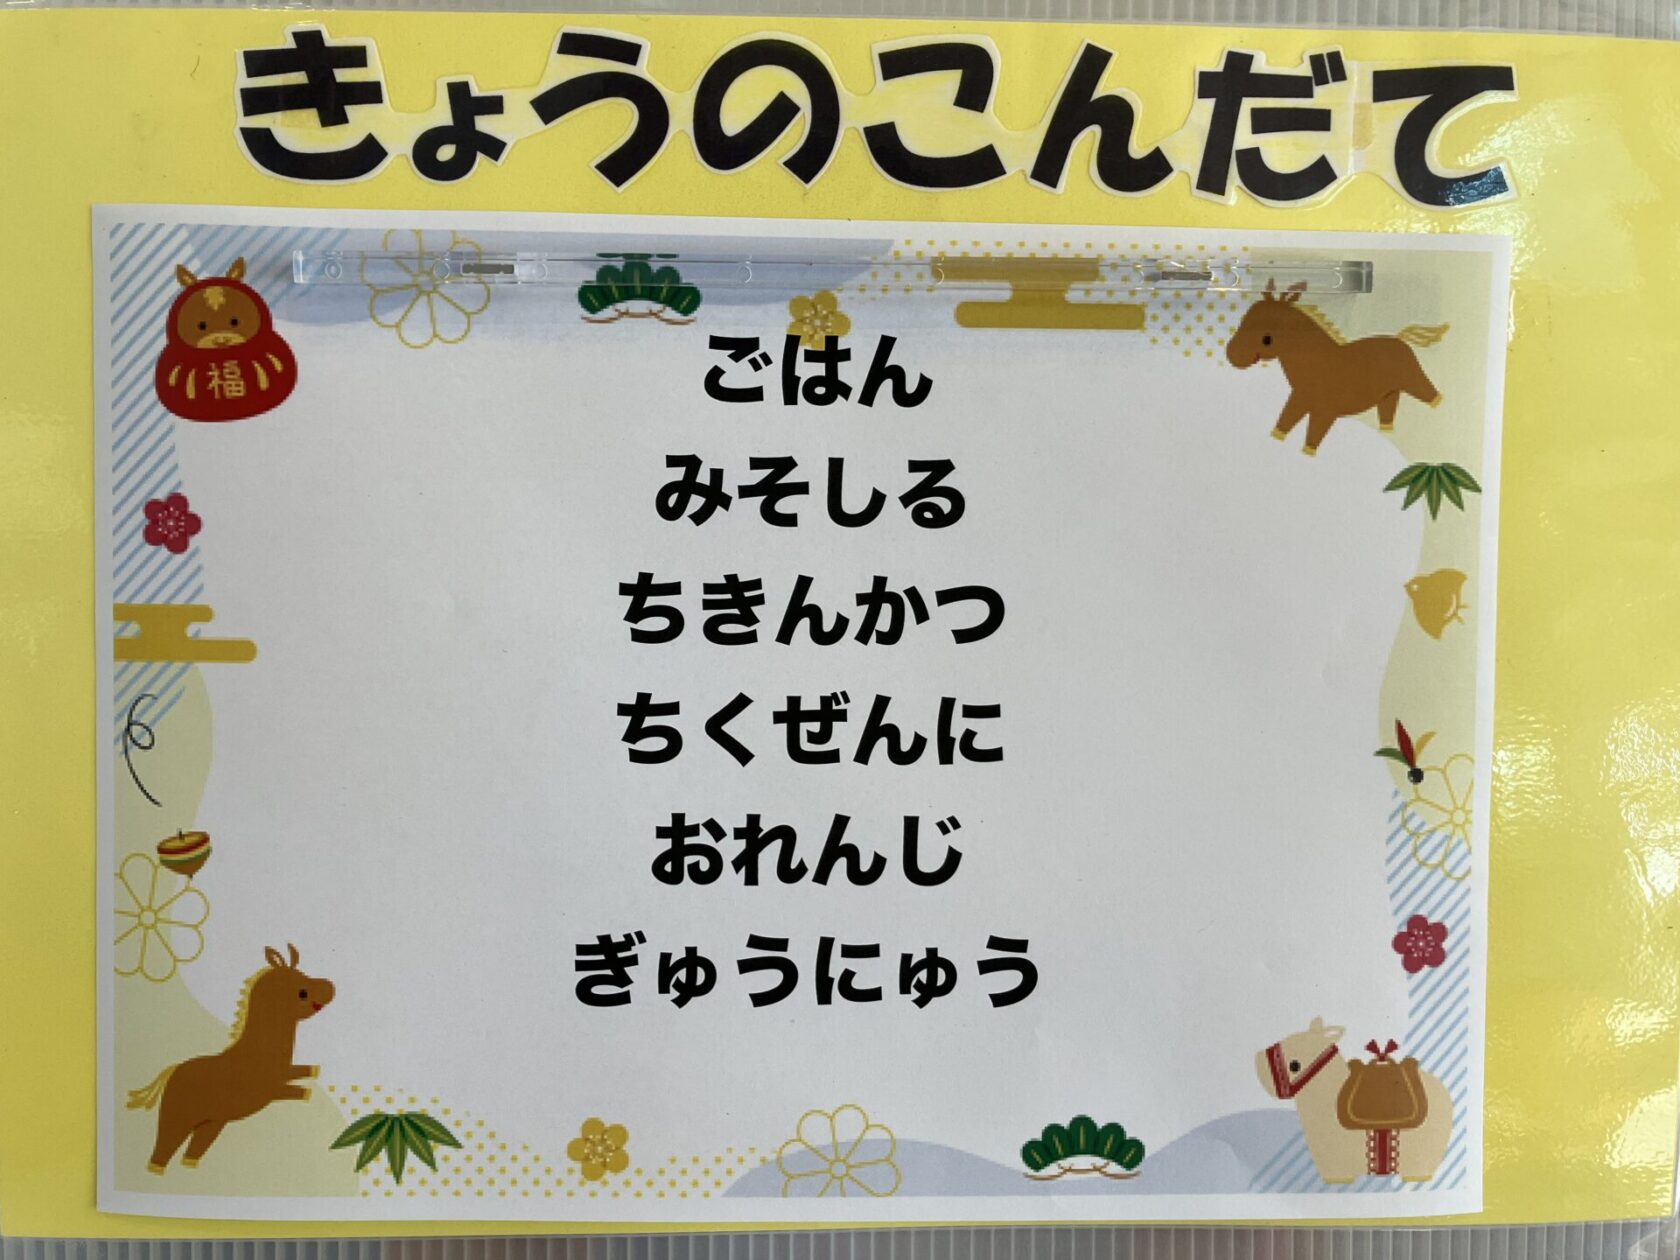 きょうのこんだて
福
ごはん
みそしる
ちきんかつ
ちくぜんに
おれんじ
ぎゅうにゅう